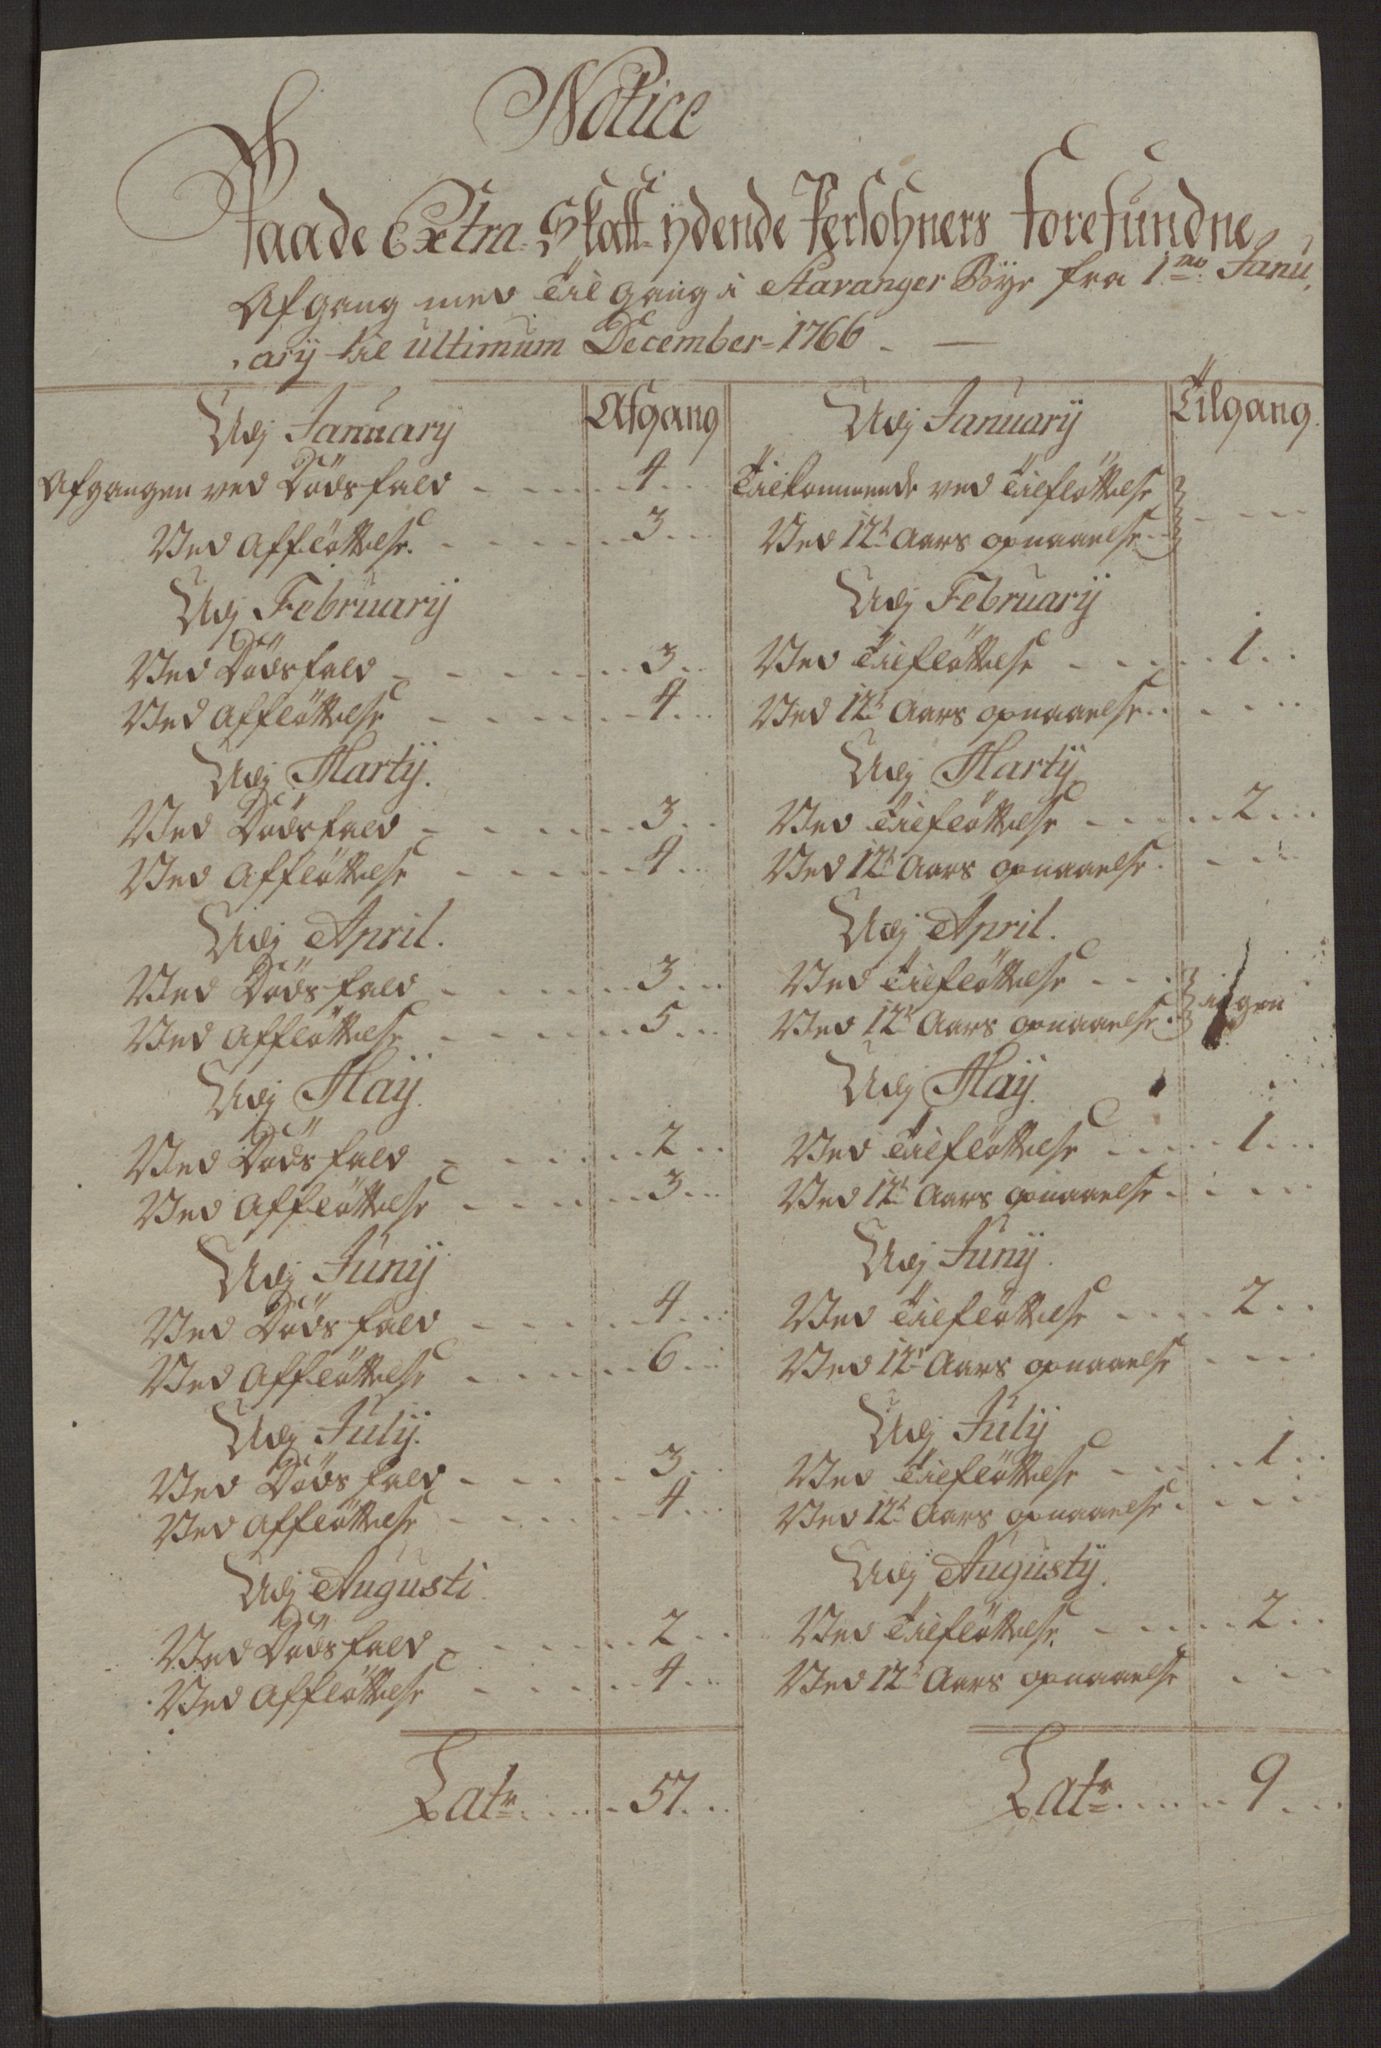 Notice
Paade Extra-Skatt ydende Persohners Forefundne
Afgang med Tilgang i Stavanger Bÿe fra 1mo Janu
arÿ til ultimum December 1766
Udj Januarÿ Afgang Udj Januarÿ Tilgang
Afgangen ved Dödsfald 4 Tilkommende ved Tilflöttelse
Ved Afflöttelse 3 Ved 12t Aars opnaaelse
Udj Februarÿ Udj Februarÿ
Ved Dödsfald 3 Ved Tilflöttelse 1
Ved Afflöttelse 4 Ved 12t Aars opnaaelse
Udj Martÿ. Udj Martÿ
Ved Dödsfald 3 Ved Tilflöttelse 2
Ved Afflöttelse 4 Ved 12t Aars opnaaelse
Udj April. Udj April.
Ved Dödsfald 3 Ved Tilflöttelse
Ved Afflöttelse 5 Ved 12t Aars opnaaelse ingen
Udj Maÿ. Udj Maÿ.
Ved Dödsfald 2 Ved Tilflöttelse 1
Ved Afflöttelse 3 Ved 12t Aars opnaaelse
Udj Junÿ Udj Junÿ.
Ved Dödsfald 4 Ved Tilflöttelse 2
Ved Afflöttelse 6 Ved 12t Aars opnaaelse
Udj Julÿ. Udj Julÿ
Ved Dödsfald 3 Ved Tilflöttelse 1
Ved Afflöttelse 4 Ved 12t Aars opnaaelse
Udj Augusti Udj Augustÿ.
Ved Dödsfald 2 Ved Tilflöttelse 2
Ved Afflöttelse 4 Ved 12t Aars opnaaelse
Latr 57 Latr 9